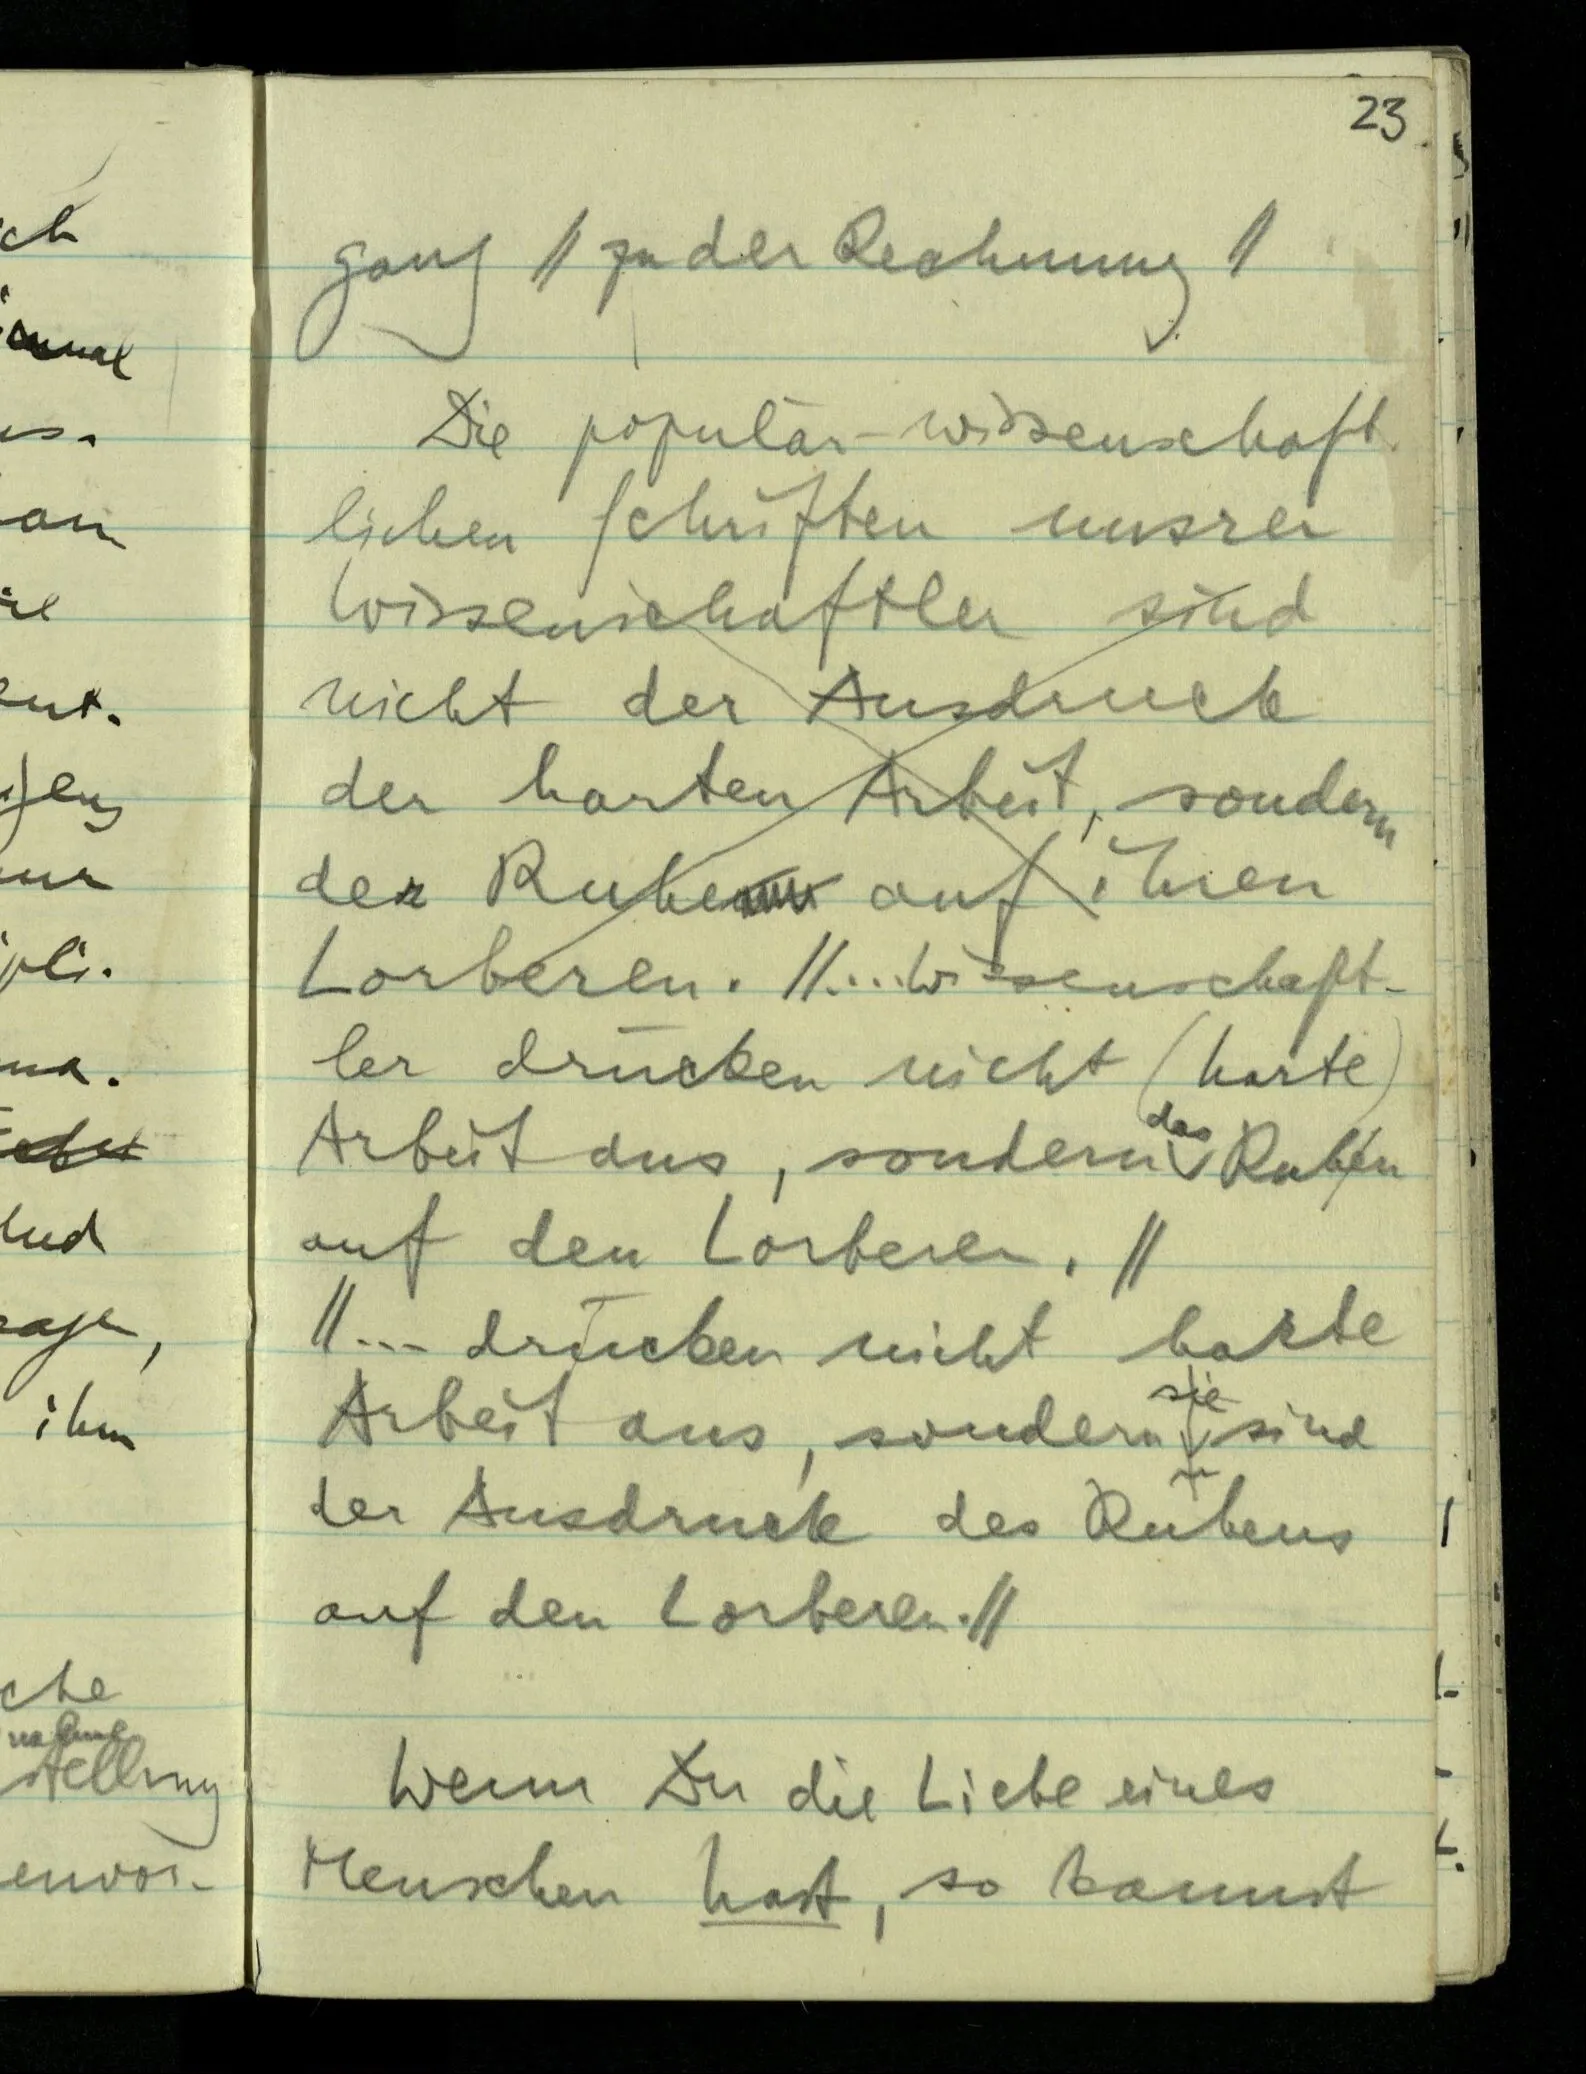 23
gang // zu der Rechnung //
Die populär-wissenschaft
lichen Schriften unsrer
Wissenschaftler sind
nicht der Ausdruck
der harten Arbeit, sondern
der Ruhe auf ihren
Lorberen. //...Wissenschaft-
ler drücken nicht (harte)
Arbeit aus, sondern das Ruhen
auf den Lorberen. //
//... drücken nicht harte
Arbeit aus, sondern sie sind
der Ausdruck des Ruhens
auf den Lorberen.//
Wenn Du die Liebe eines
Menschen hast, so kannst
ich
ihm
stellung